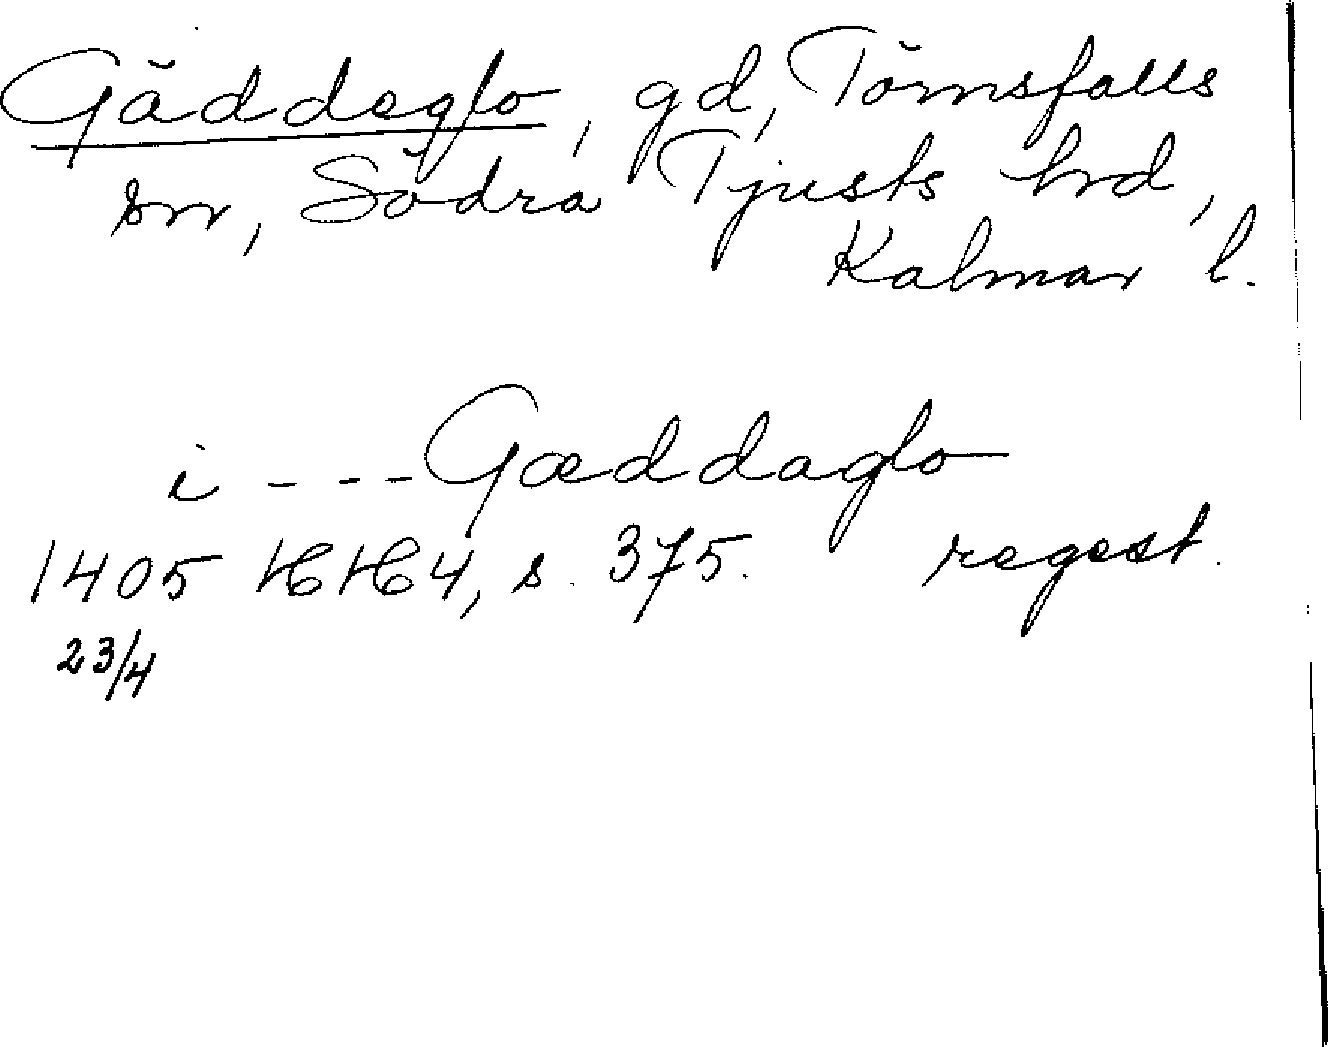 Gäddeglo, gd, Törnsfalls
sn, Södra Tjusts hrd,
Kalmar l.
i --- Gæddaglo
1405 HH 4, s. 375. regest.
23/4